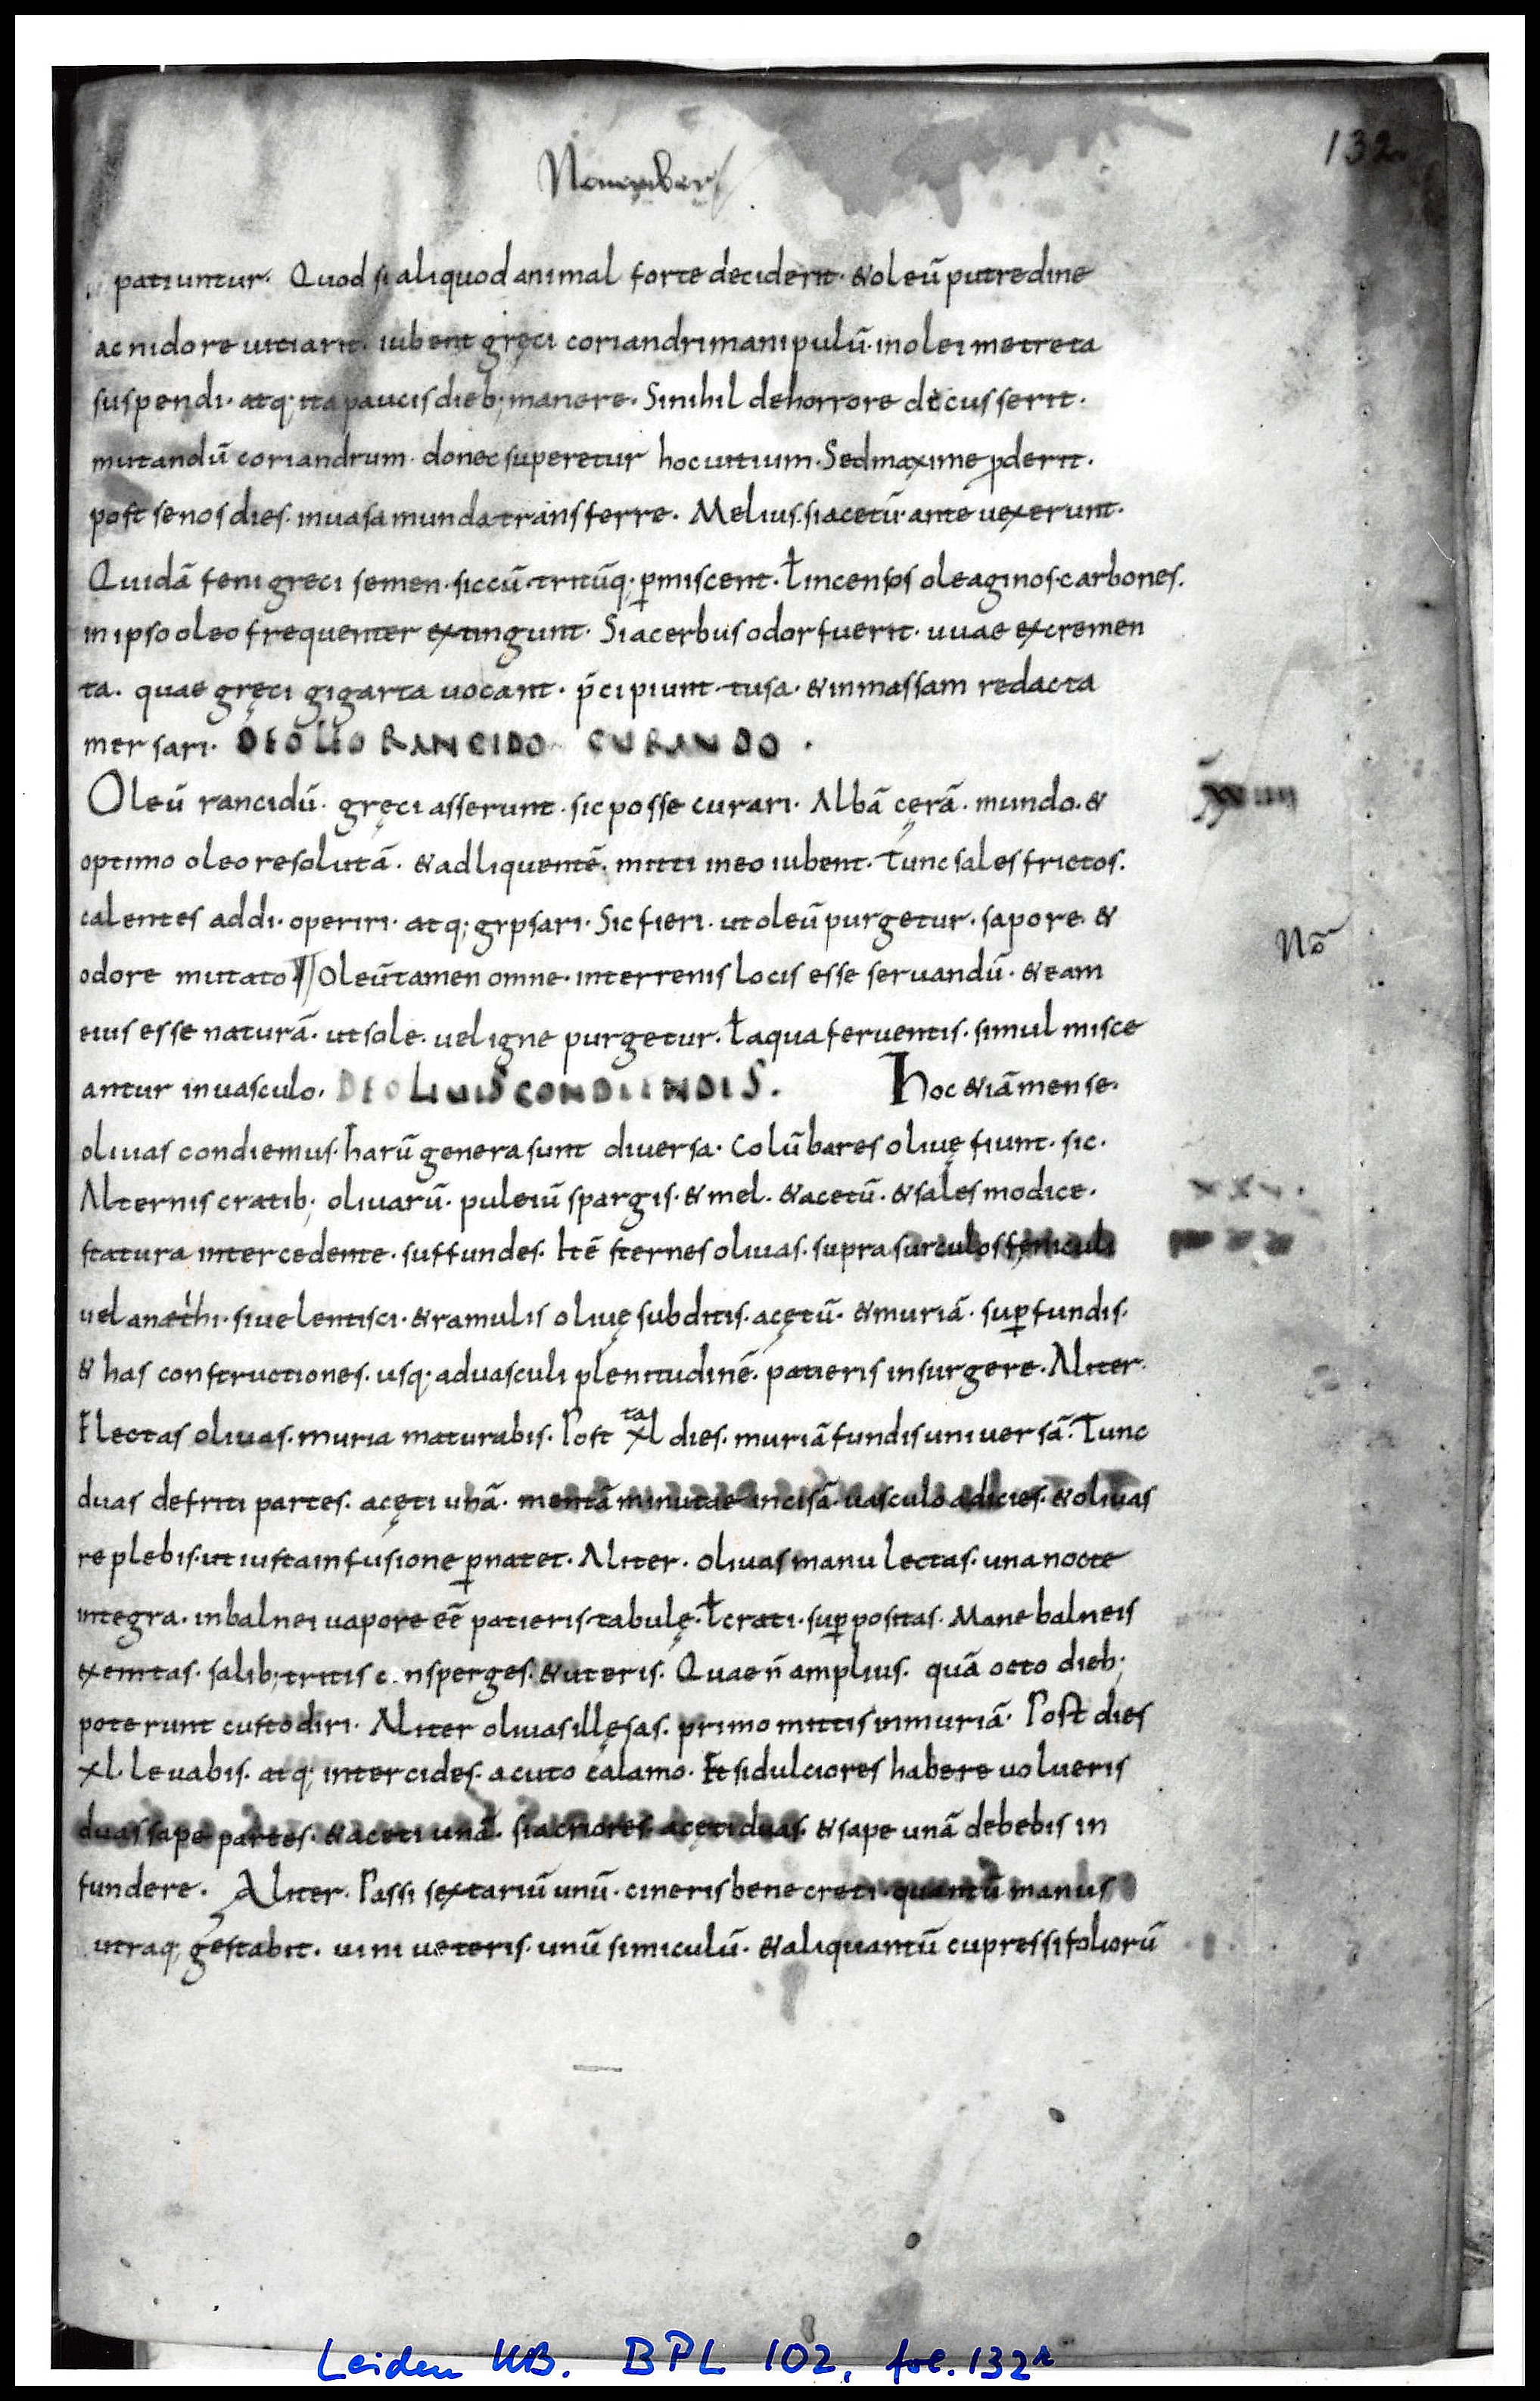 132
November
patiuntur. Quod si aliquod animal forte deciderit. & oleū putredine
ac nidore uitiarit. iubent gręci coriandri manipulū. in olei metreta
suspendi. atq; ita paucis dieb; manere. Si nihil de horrore decusserit.
mutandū coriandrum. donec superetur hoc uitium. Sed maxime ꝓderit.
post senos dies. in uasa munda transferre. Melius. si acetū. ante uexerunt.
Quidā feni greci semen. siccū. tritūq; ꝑmiscent. ł incensos oleaginos. carbones.
in ipso oleo frequenter extingunt. Si acerbus odor fuerit. uuae excremen
ta. quae gręci gigarta uocant. p̄cipiunt. tusa. & in massam redacta
mersari. DE OLEO RANCIDO CURANDO.
Oleū rancidū. gręci asserunt. sic posse curari. Albā cęrā. mundo. &
optimo oleo resolutā. & adliquentē. mitti in eo iubent. Tunc sales frictos.
calentes addi. operiri. atq; gypsari. Sic fieri. ut oleū purgetur. sapore. &
Nō
odore mutato. Oleū tamen omne. in terrenis locis esse seruandū. & eam
eius esse naturā. ut sole. uel igne purgetur. ł aqua feruentis. simul misce
antur in uasculo. DE OLIUIS CONDIENDIS. Hoc & iā mense.
oliuas condiemus. harū genera sunt diuersa. Colūbares oliuę fiunt. sic.
Alternis cratib; oliuarū. puleiū spargis. & mel. & acetū. & sales modice.
statura intercedente. suffundes. Itē sternes oliuas. supra surculos feniculi
uel anæthi. siue lentisci. & ramulis oliuę subditis. acętū. & muriā. suꝑfundis.
& has constructiones. usq; ad uasculi plenitudinē. patieris insurgere. Aliter.
Electas oliuas. muria maturabis. Post xl ta dies. muriā fundis uniuersā. Tunc
duas defriti partes. acęti unā. mentā minutae incisā. uasculo adicies. & oliuas
replebis. ut iusta infusione ꝑnatet. Aliter. oliuas manu lectas. una nocte
integra. in balnei uapore eē patieris. tabulę. ł crati. suꝑpositas. Mane balneis
exemtas. salib; tritis c nsperges. & uteris. Quae n̄ amplius. quā octo dieb;
poterunt custodiri. Aliter oliuas illęsas. primo mittis in muriā. Post dies
xl. leuabis. atq; intercides. acuto calamo. Et si dulciores habere uolueris
duas sape partes. & aceti unā. si acriores. acęti duas. & sape unā debebis in
fundere. Aliter. Passi sextariū unū. cineris bene creti. quantū manus
utraq; gestabit. uini ueteris. unū simiculū. & aliquantū cupressi foliorū
Leiden UB. BPL 102, fol. 132r